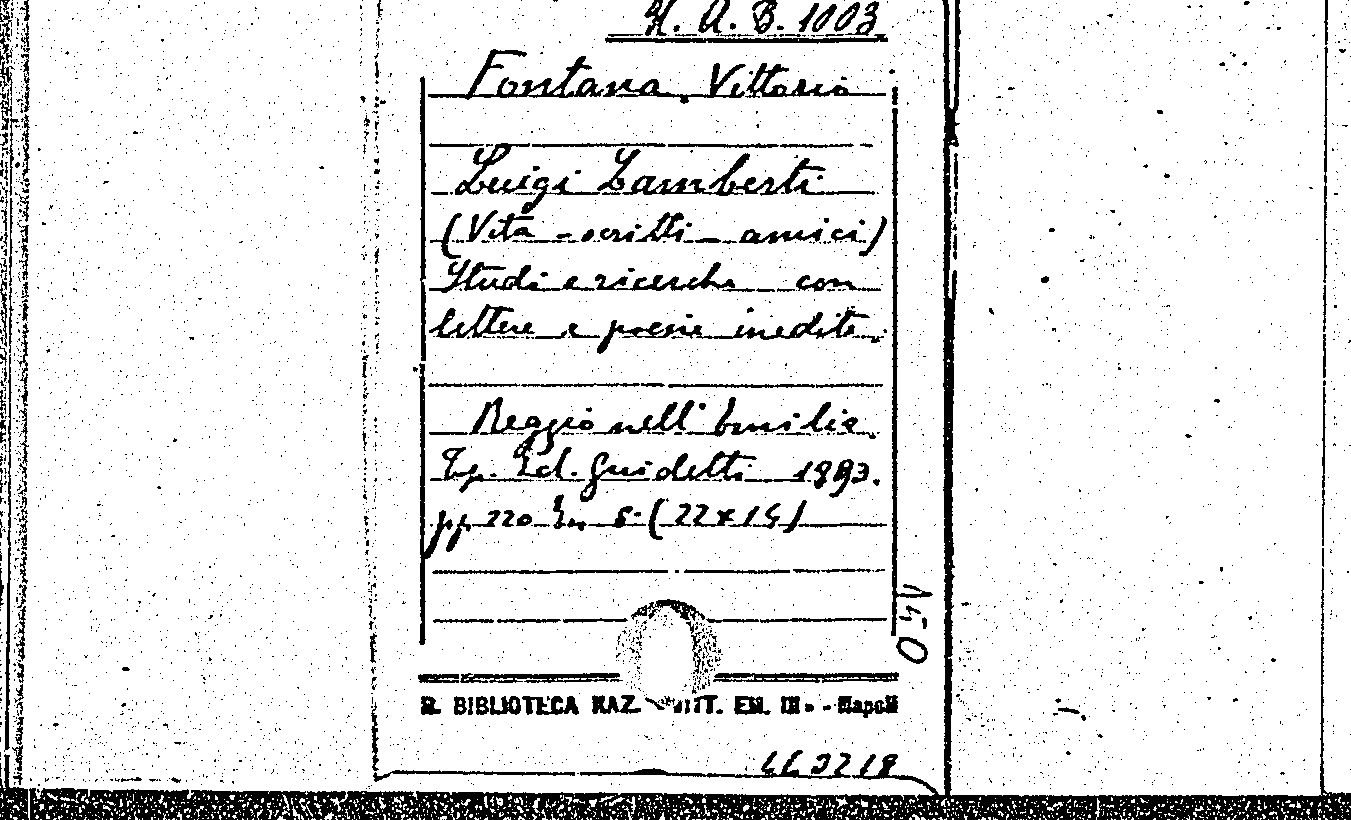 H. A. B. 1003
Fontana, Vittorio
Luigi Lamberti
(Vita - scritti - amici)
Studi e ricerche con
lettere e poesie inedite.
Reggio nell'Emilia.
Tip. Ed. Guidetti 1893.
pp. 220 In 8° (22x15)
R. BIBLIOTECA NAZ. VITT. EM. III» - Napoli